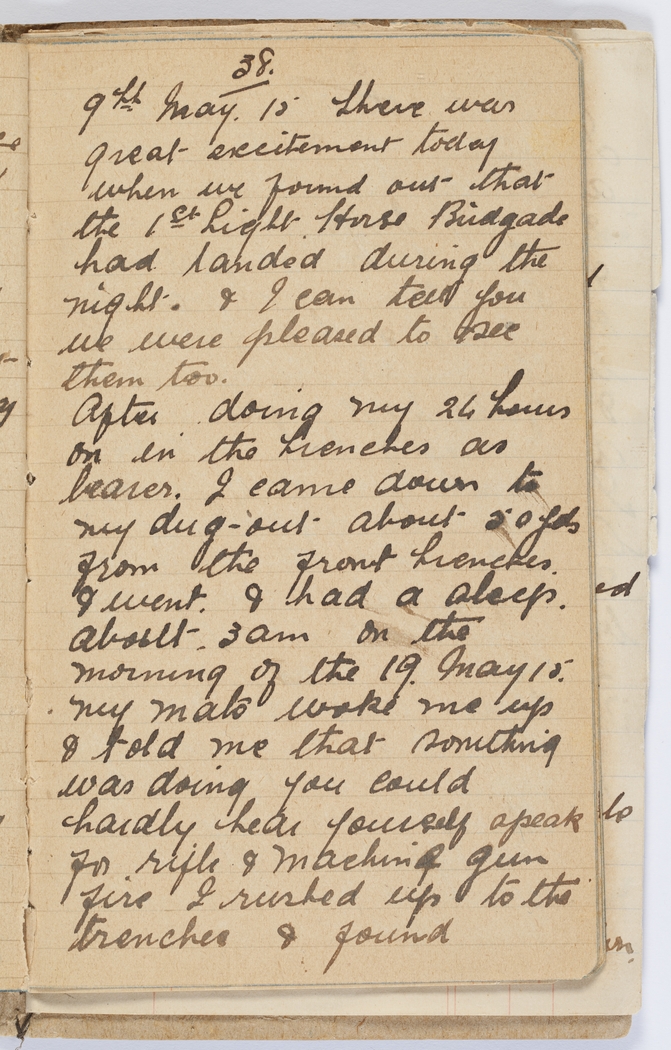 38.
9th May. 15 There was
great excitement today
when we found out that
the 1st Light Horse Bridgade
had landed during the
night. & I can tell you
we were pleased to see
them too.
After doing my 24 hours
on in the trenches as
bearer. I came down to
my dug-out about 50 yds
from the front trenches.
& went. & had a sleep.
about 3am on the
morning of the 19. May 15.
my mate woke me up
& told me that somthing
was doing you could
hardly hear yourself speak
for rifle & machine gun
fire I rushed up to the
trenches & found